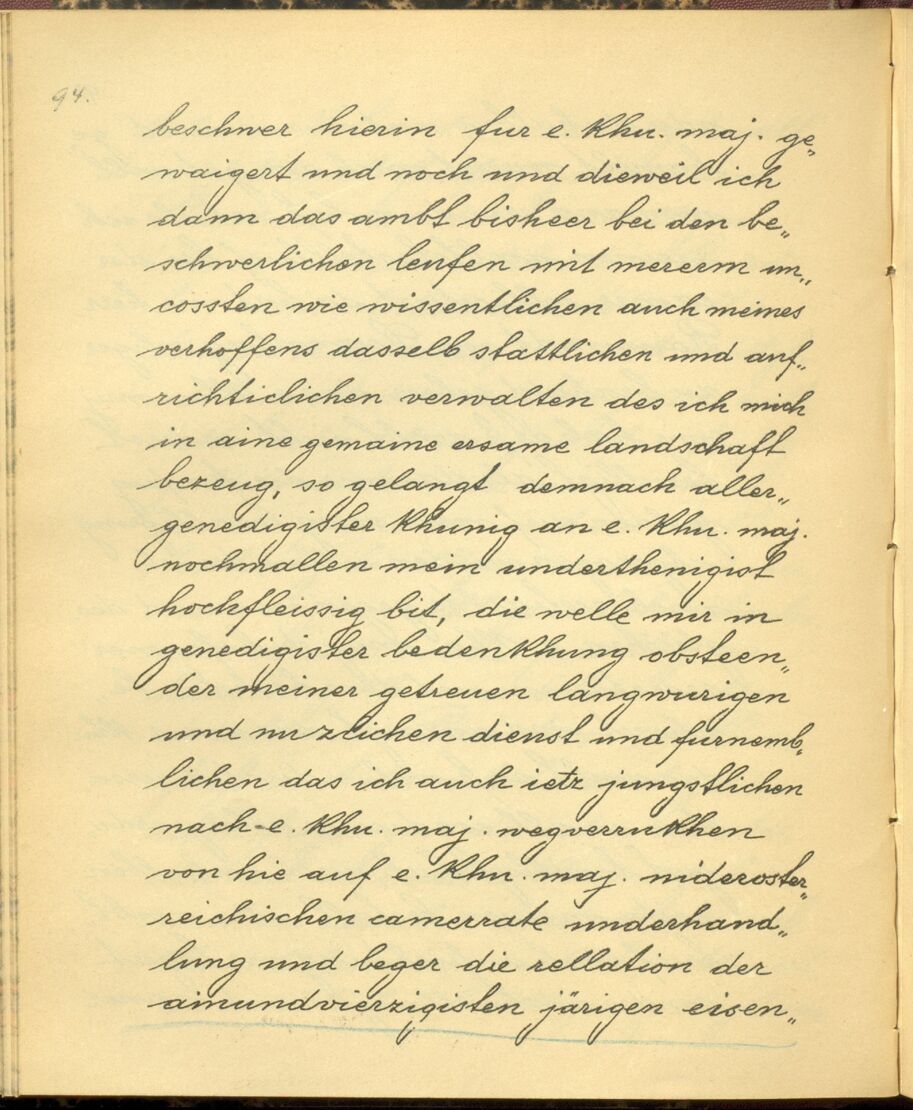 94.
beschwer hierin fur e. Khu. maj. ge„
waigert und noch und dieweil ich
dann das ambt bisheer bei den be„
schwerlichen leufen mit mererm un„
cossten wie wissentlichen auch meines
verhoffens dasselb stattlichen und auf„
richticlichen verwalten des ich mich
in aine gemaine ersame landschaft
bezeug, so gelangt demnach aller„
genedigister Khunig an e. Khu. maj.
nochmallen mein underthenigist
hochfleissig bit, die welle mir in
genedigister bedenkhung obsteen„
der meiner getreuen langwurigen
und nuzlichen dienst und furnemb„
lichen das ich auch ietz jungstlichen
nach e. Khu. maj. wegverrukhen
von hie auf e. Khu. maj. nideroster„
reichischen camerrate underhand„
lung und beger die rellation der
ainundvierzigisten järigen eisen„